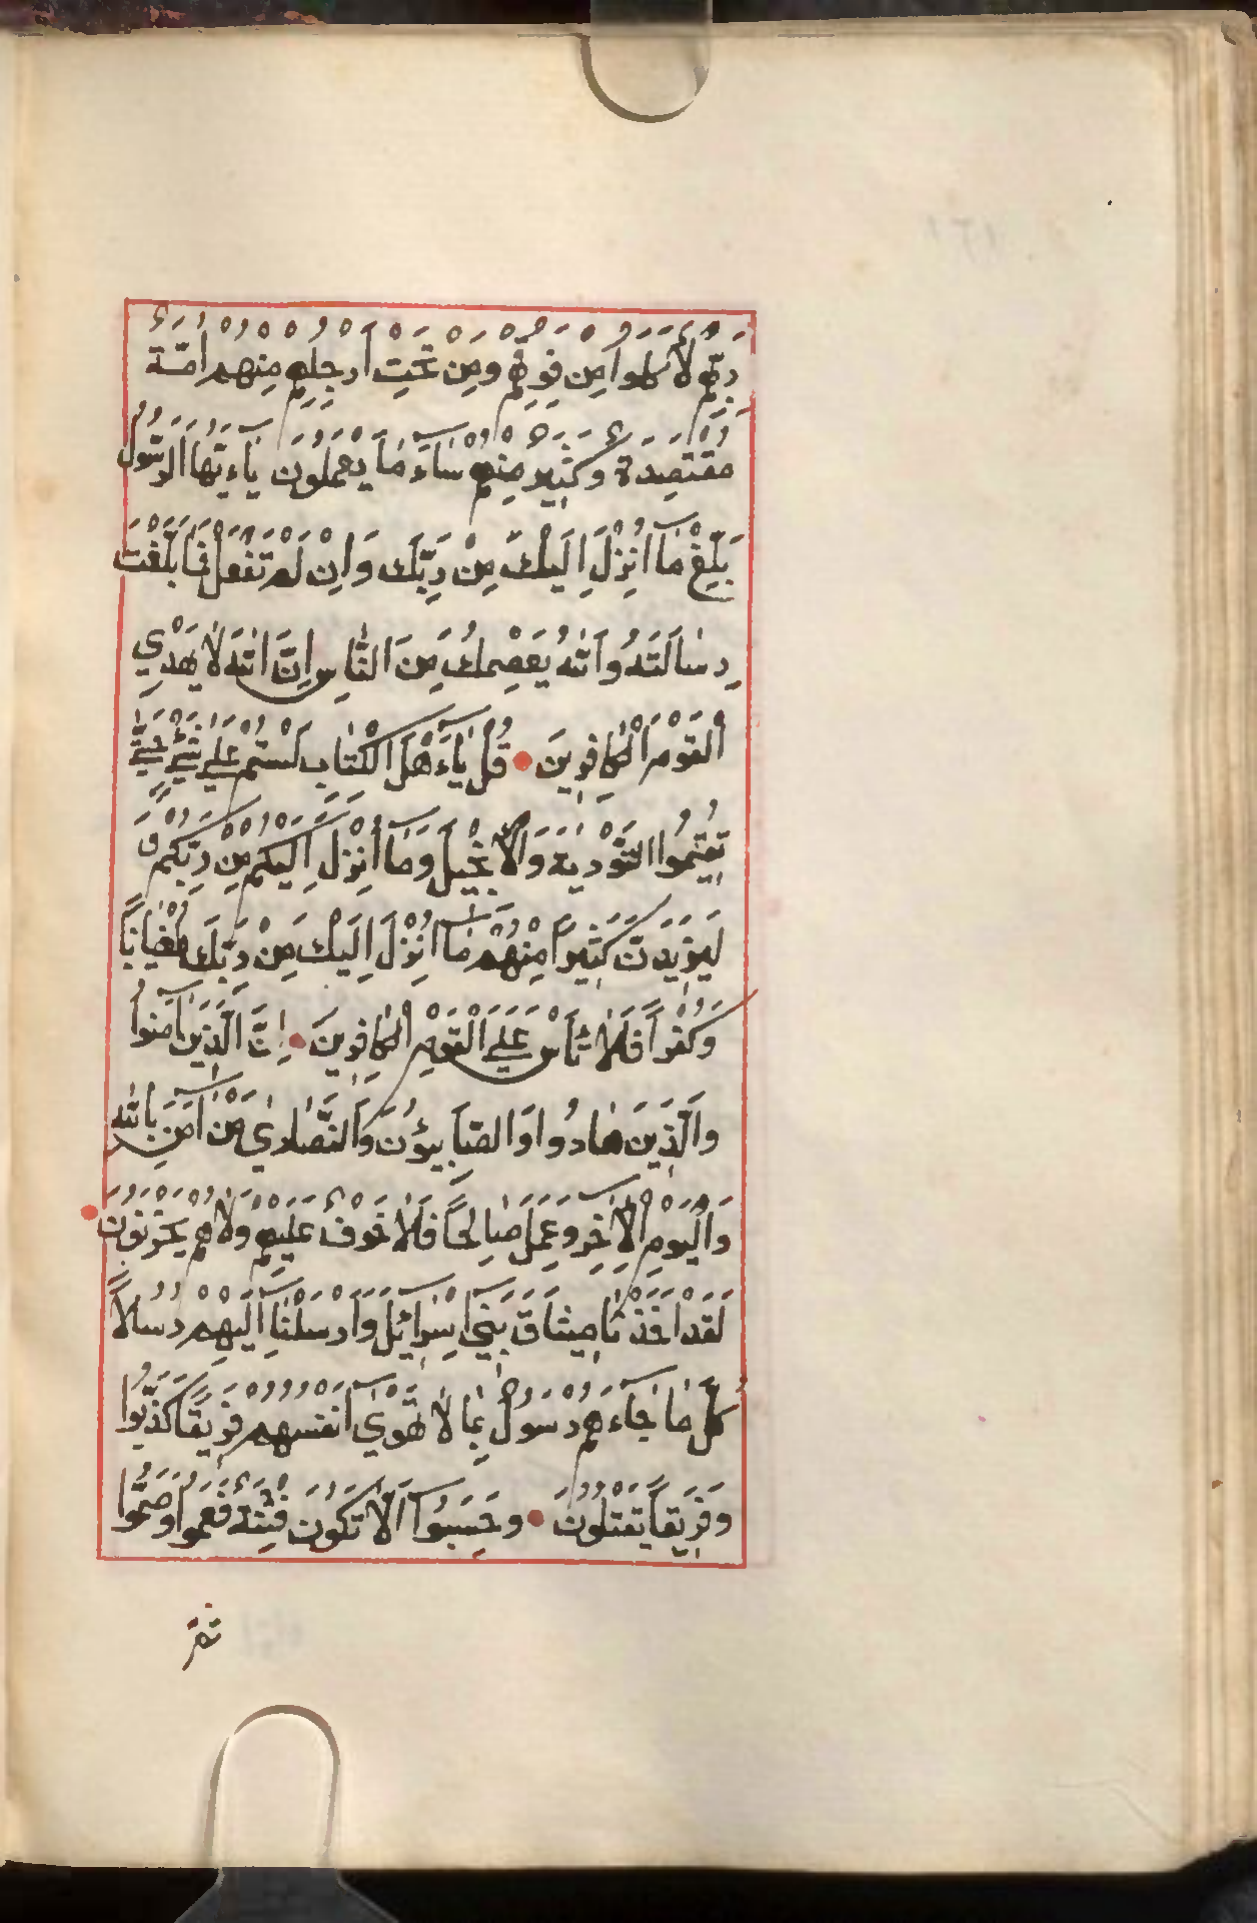 رَبِّهِمْ لَأَكَلُوا مِنْ فَوْقِهِمْ وَمِنْ تَحْتِ أَرْجُلِهِمْ مِنْهُمْ أُمَّةٌ
مُقْتَصِدَةٌ وَكَثِيرٌ مِنْهُمْ سَآءَ مَا يَعْمَلُونَ يَاءَيُّهَا الرَّسُولُ
بَلِّغْ مَآ اُنْزِلَ اِلَيْكَ مِنْ رَبِّكَ وَاِنْ لَمْ تَفْعَلْ فَمَا بَلَّغْتَ
رِسَالَتَهُ وَاللهُ يَعْصِمُكَ مِنَ النَّاسِ اِنَّ اللهَ لَا يَهْدِي
الْقَوْمَ الْكَافِرِينَ • قُلْ يَآءَهْلَ الْكِتَابِ لَسْتُمْ عَلَى شَيْءٍ حَتَّى
تُقِيمُوا التَّوْرَيةَ وَالْاِنْجِيلَ وَمَآ اُنْزِلَ اِلَيْكُمْ مِنْ رَبِّكُمْ وَ
لَيَزِيدَنَّ كَثِيراً مِنْهُمْ مَآ اُنْزِلَ اِلَيْكَ مِنْ رَبِّكَ طُغْيَانًا
وَكُفْراً فَلَا تَأْسَ عَلَى الْقَوْمِ الْكَافِرِينَ • اِنَّ الَّذِينَ اٰمَنُوا
وَالَّذِينَ هَادُوا وَالصَّابِيؤُنَ وَالنَّصَارَى مَنْ اٰمَنَ بِاللهِ
وَالْيَوْمِ الْاٰخِرِ وَعَمِلَ صَالِحًا فَلَا خَوْفٌ عَلَيْهِمْ وَلَا هُمْ يَحْزَنُونَ •
لَقَدْ اَخَذْنَا مِيثَاقَ بَنِي اِسْرَائِلَ وَاَرْسَلْنَا اِلَيْهِمْ رُسُلاً
كُلَّ مَا جَآءَهُمْ رَسُولٌ بِمَا لَا تَهْوَى اَنْفُسُهُمْ فَرِيقًا كَذَّبُوا
وَفَرِيقاً يَقْتُلُونَ • وَحَسِبُوآ اَلَّا تَكُونَ فِتْنَةٌ فَعَمُوا وَصَمُّوا
ثم